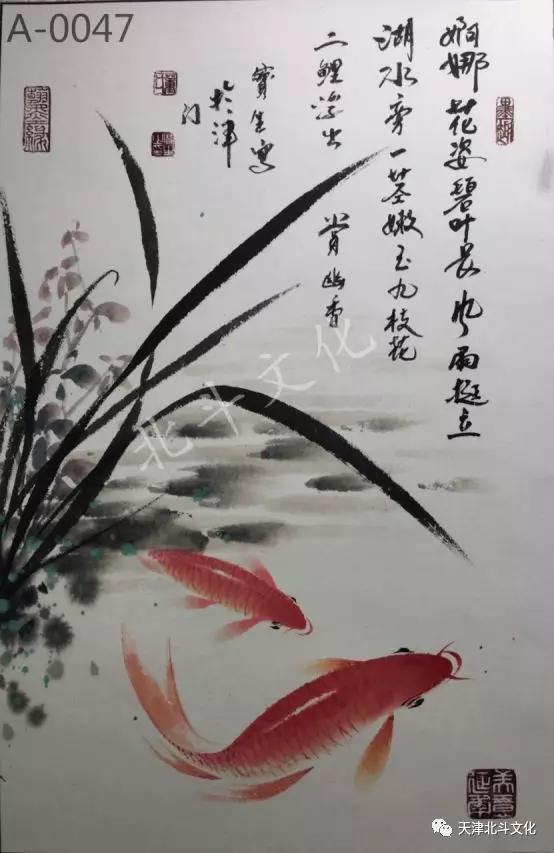 A-0047
婀娜花姿碧叶长风雨挺立
湖水旁一茎嫩玉九枝花
二鲤浮出 幽香
寶生寫
於津
门
美意延年
北斗文化
天津北斗文化